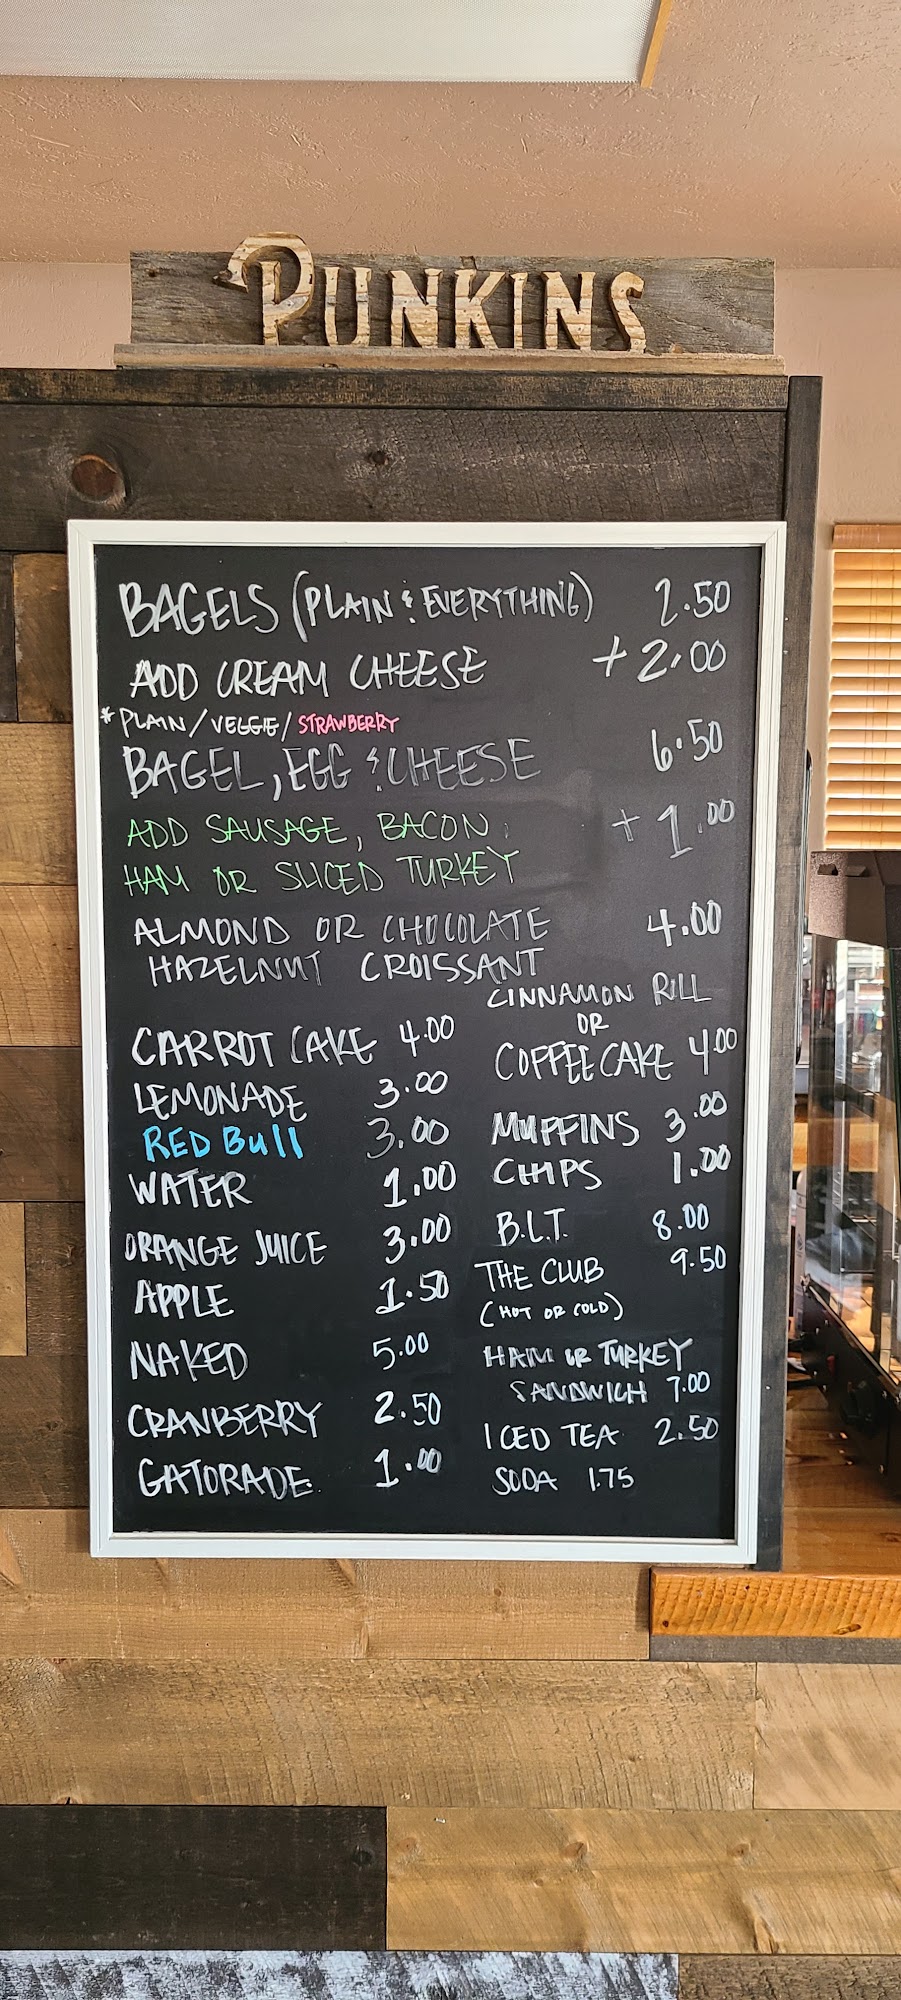 PUNKINS
BAGELS (PLAIN & EVERYTHING) 2.50
ADD CREAM CHEESE +2.00
* PLAIN/VEGGIE/STRAWBERRY
BAGEL, EGG & CHEESE 6.50
ADD SAUSAGE, BACON, +1.00
HAM OR SLICED TURKEY
ALMOND OR CHOCOLATE 4.00
HAZELNUT CROISSANT
CARROT CAKE 4.00
LEMONADE 3.00
RED Bull 3.00
WATER 1.00
ORANGE JUICE 3.00
APPLE 1.50
NAKED 5.00
CRANBERRY 2.50
GATORADE 1.00
CINNAMON RILL
OR
COFFEE CAKE 4.00
MUFFINS 3.00
CHIPS 1.00
B.L.T. 8.00
THE CLUB 9.50
(HOT OR COLD)
HAM OR TURKEY
SANDWICH 7.00
ICED TEA 2.50
SODA 1.75